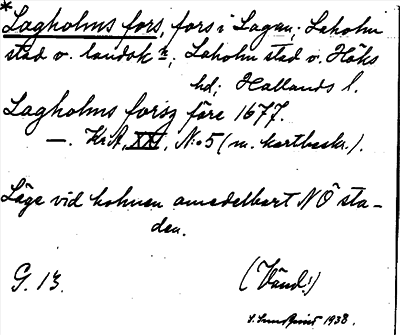 *Lagholms fors, fors i Lagan; Laholm
stad o. landsk:n; Laholm stad o. Höks
hd; Hallands l.
Lagholms forsz före 1677.
—. Kr.A. XXI, N:o 5 (m. kartbeskr.).
Läge vid holmen omedelbart NÖ sta-
den.
G. 13.
(Vänd!)
S. Lundquist 1938.